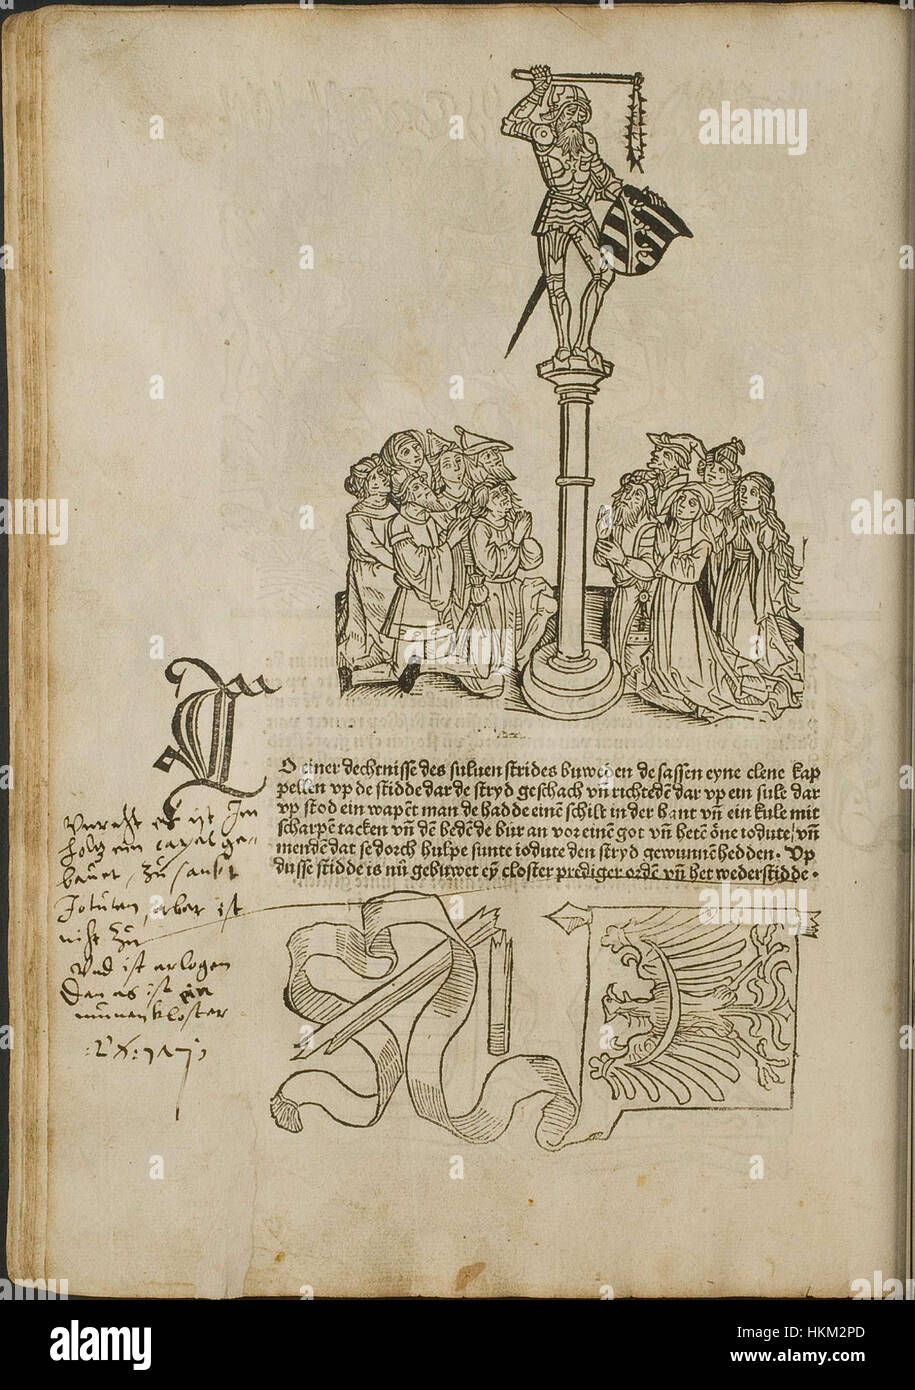 O einer dechtnisse des suluen strides buweden de sassen eyne clene kap
pellen vp de stidde dar de stryd geschach vn̄ richtedē dar vp ein sule dar
vp stod ein wapēt man de hadde einē schilt in der hant vn̄ ein kule mit
scharpē tacken vn̄ dē bedēde bur an vor einē got vn̄ betē ōne iodute/ vn̄
mendē dat se dorch hulpe sunte iodute den stryd gewunnē hedden. Vp
dusse stidde is nu gebuwet eȳ closter prediger ordē vn̄ het wederstidde.
holtz ein capel ge-
bauet, zu sankt
Jotuten, aber ist
nicht zu
Und ist erlogen
Dan es ist ein
nunen kloster
alamy
Image ID: HKM2PD
www.alamy.com